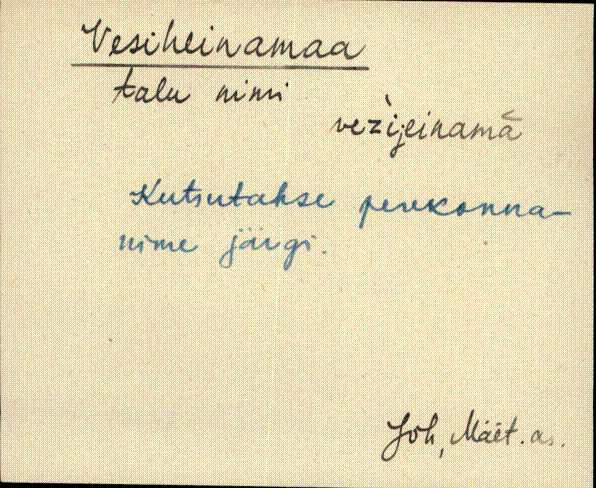 Vesiheinamaa
talu nimi
vezìjeinamā
Kutsutakse perekonna-
nime järgi.
Jõh, Mäet. as.